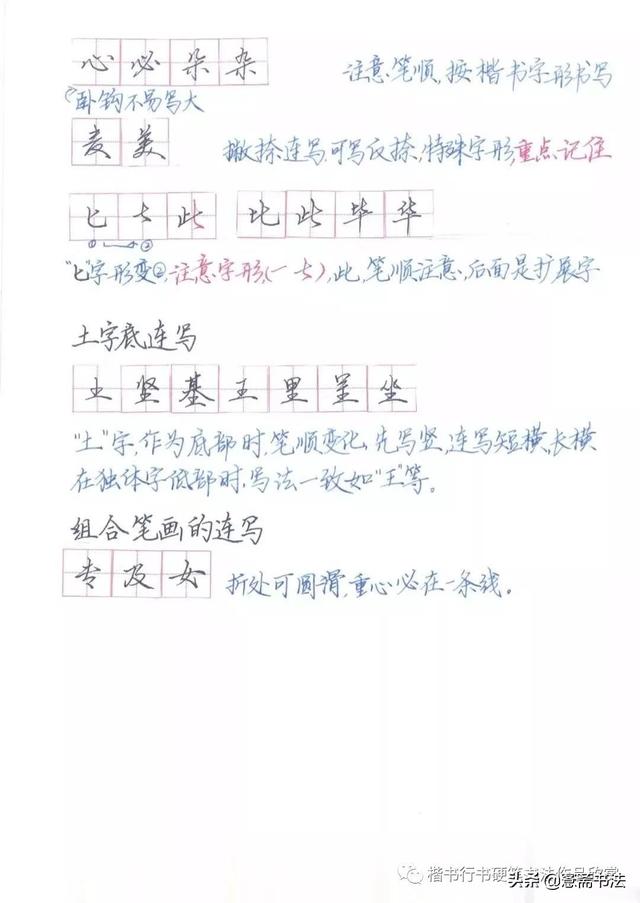 心必朵杂 注意笔顺,按楷书字形书写
卧钩不易写大
麦美 撇捺连写,可写反捺,特殊字形,重点记住
匕 此 比此毕华
①②
"匕"字形变②,注意字形,(一 ),此,笔顺注意,后面是扩展字
土字底连写
土坚基王里呈坐
"土"字,作为底部时,笔顺变化,先写竖,连写短横,长横
在独体字底部时,写法一致如"王"等。
组合笔画的连写
专及女 折处可圆滑,重心必在一条线。
楷书行书硬笔书法作品欣赏
头条@慧斋书法